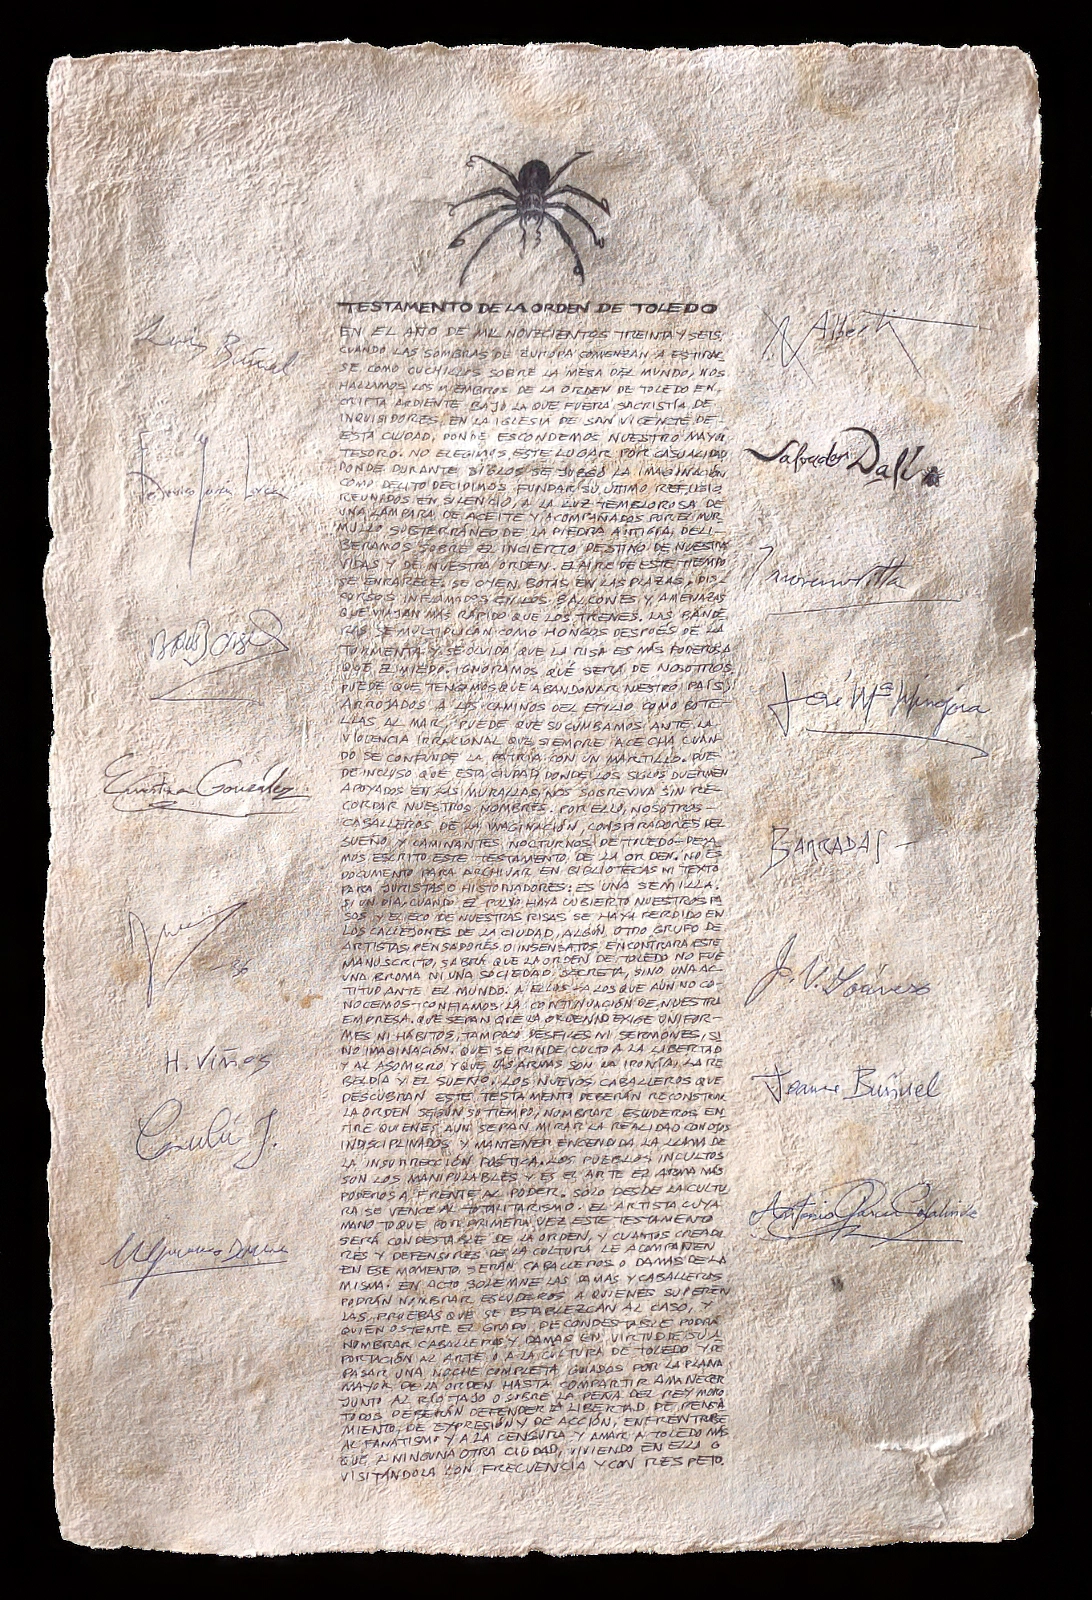 TESTAMENTO DE LA ORDEN DE TOLEDO
EN EL AÑO DE MIL NOVECIENTOS TREINTA Y SEIS,
CUANDO LAS SOMBRAS DE EUROPA COMIENZAN A ESTIRAR
SE COMO CUCHILLOS SOBRE LA MESA DEL MUNDO, NOS
HALLAMOS LOS MIEMBROS DE LA ORDEN DE TOLEDO EN
CRIPTA ARDIENTE BAJO LA QUE FUERA SACRISTÍA DE
INQUISIDORES, EN LA IGLESIA DE SAN VICENTE DE
ESTA CIUDAD, DONDE ESCONDEMOS NUESTRO MAYOR
TESORO. NO ELEGIMOS ESTE LUGAR POR CASUALIDAD
DONDE DURANTE SIGLOS SE JUZGÓ LA IMAGINACIÓN
COMO DELITO DECIDIMOS FUNDAR SU ÚLTIMO REFUGIO
REUNIDOS EN SILENCIO, A LA LUZ TEMBLOROSA DE
UNA LÁMPARA DE ACEITE Y ACOMPAÑADOS POR EL MUR
MULLO SUBTERRÁNEO DE LA PIEDRA ANTIGUA, DELI-
BERAMOS SOBRE EL INCIERTO DESTINO DE NUESTRAS
VIDAS Y DE NUESTRA ORDEN. EL AIRE DE ESTE TIEMPO
SE ENRARECE. SE OYEN BOTAS EN LAS PLAZAS, DIS
CURSOS INFLAMADOS EN LOS BALCONES Y AMENAZAS
QUE VIAJAN MÁS RÁPIDO QUE LOS TRENES. LAS BANDE
RAS SE MULTIPLICAN COMO HONGOS DESPUÉS DE LA
TORMENTA Y SE OLVIDA QUE LA RISA ES MÁS PODEROSA
QUE EL MIEDO. IGNORAMOS QUÉ SERÁ DE NOSOTROS.
PUEDE QUE TENGAMOS QUE ABANDONAR NUESTRO PAÍS,
ARROJADOS A LOS CAMINOS DEL EXILIO COMO BOTE-
LLAS AL MAR, PUEDE QUE SUCUMBAMOS ANTE LA
VIOLENCIA IRRACIONAL QUE SIEMPRE ACECHA CUAN-
DO SE CONFUNDE LA PATRIA CON UN MARTILLO. PUE
DE INCLUSO QUE ESTA CIUDAD, DONDE LOS SIGLOS DUERMEN
APOYADOS EN LAS MURALLAS, NOS SOBREVIVA SIN RE-
CORDAR NUESTROS NOMBRES. POR ELLO, NOSOTROS -
CABALLEROS DE LA IMAGINACIÓN, CONSPIRADORES DEL
SUEÑO Y CAMINANTES NOCTURNOS DE TOLEDO - DEJA
MOS ESCRITO ESTE TESTAMENTO DE LA ORDEN. NO ES
DOCUMENTO PARA ARCHIVAR EN BIBLIOTECAS NI TEXTO
PARA JURISTAS O HISTORIADORES: ES UNA SEMILLA.
SI UN DÍA, CUANDO EL POLVO HAYA CUBIERTO NUESTROS PA
SOS Y EL ECO DE NUESTRAS RISAS SE HAYA PERDIDO EN
LOS CALLEJONES DE LA CIUDAD, ALGÚN OTRO GRUPO DE
ARTISTAS, PENSADORES O INSENSATOS ENCONTRARA ESTE
MANUSCRITO, SABRÁ QUE LA ORDEN DE TOLEDO NO FUE
UNA BROMA NI UNA SOCIEDAD SECRETA, SINO UNA AC-
TITUD ANTE EL MUNDO. A ELLOS - A LOS QUE AÚN NO CO-
NOCEMOS - CONFIAMOS LA CONTINUACIÓN DE NUESTRA
EMPRESA. QUE SEPAN QUE LA ORDEN NO EXIGE UNIFOR-
MES NI HÁBITOS, TAMPOCO DESFILES NI SERMONES, SI
NO IMAGINACIÓN. QUE SE RINDE CULTO A LA LIBERTAD
Y AL ASOMBRO Y QUE LAS ARMAS SON LA IRONÍA, LA RE
BELDÍA Y EL SUEÑO. LOS NUEVOS CABALLEROS QUE
DESCUBRAN ESTE TESTAMENTO DEBERÁN RECONSTRUIR
LA ORDEN SEGÚN SU TIEMPO, NOMBRAR ESCUDEROS EN
TRE QUIENES AÚN SEPAN MIRAR LA REALIDAD CON OJOS
INDISCIPLINADOS Y MANTENER ENCENDIDA LA LLAMA DE
LA INSURRECCIÓN POÉTICA. LOS PUEBLOS INCULTOS
SON LOS MANIPULABLES Y ES EL ARTE EL ARMA MÁS
PODEROSA FRENTE AL PODER. SÓLO DESDE LA CULTU
RA SE VENCE AL TOTALITARISMO. EL ARTISTA CUYA
MANO TOQUE POR PRIMERA VEZ ESTE TESTAMENTO
SERÁ CONDESTABLE DE LA ORDEN, Y CUANTOS CREADO
RES Y DEFENSORES DE LA CULTURA LE ACOMPAÑEN
EN ESE MOMENTO, SERÁN CABALLEROS O DAMAS DE LA
MISMA. EN ACTO SOLEMNE LAS DAMAS Y CABALLEROS
PODRÁN NOMBRAR ESCUDEROS A QUIENES SUPEREN
LAS PRUEBAS QUE SE ESTABLEZCAN AL CASO, Y
QUIEN OSTENTE EL GRADO DE CONDESTABLE PODRÁ
NOMBRAR CABALLEROS Y DAMAS EN VIRTUD DE SU A
PORTACIÓN AL ARTE O A LA CULTURA DE TOLEDO Y RE
PASAR UNA NOCHE COMPLETA GUIADOS POR LA PLANA
MAYOR DE LA ORDEN HASTA COMPARTIR AMANECER
JUNTO AL RÍO TAJO O SOBRE LA PEÑA DEL REY MORO
TODOS DEBERÁN DEFENDER LA LIBERTAD DE PENSA
MIENTO, DE EXPRESIÓN Y DE ACCIÓN, ENFRENTARSE
AL FANATISMO Y A LA CENSURA Y AMAR A TOLEDO MÁS
QUE A NINGUNA OTRA CIUDAD, VIVIENDO EN ELLA O
VISITÁNDOLA CON FRECUENCIA Y CON RESPETO.
Luis Buñuel
Federico García Lorca
Ernestina González
36
H. Viñes
Ugarte
R Alberti
Salvador Dalí
José Mª Hinojosa
BARRADAS -
Jeanne Buñuel
Antonio García Solalinde